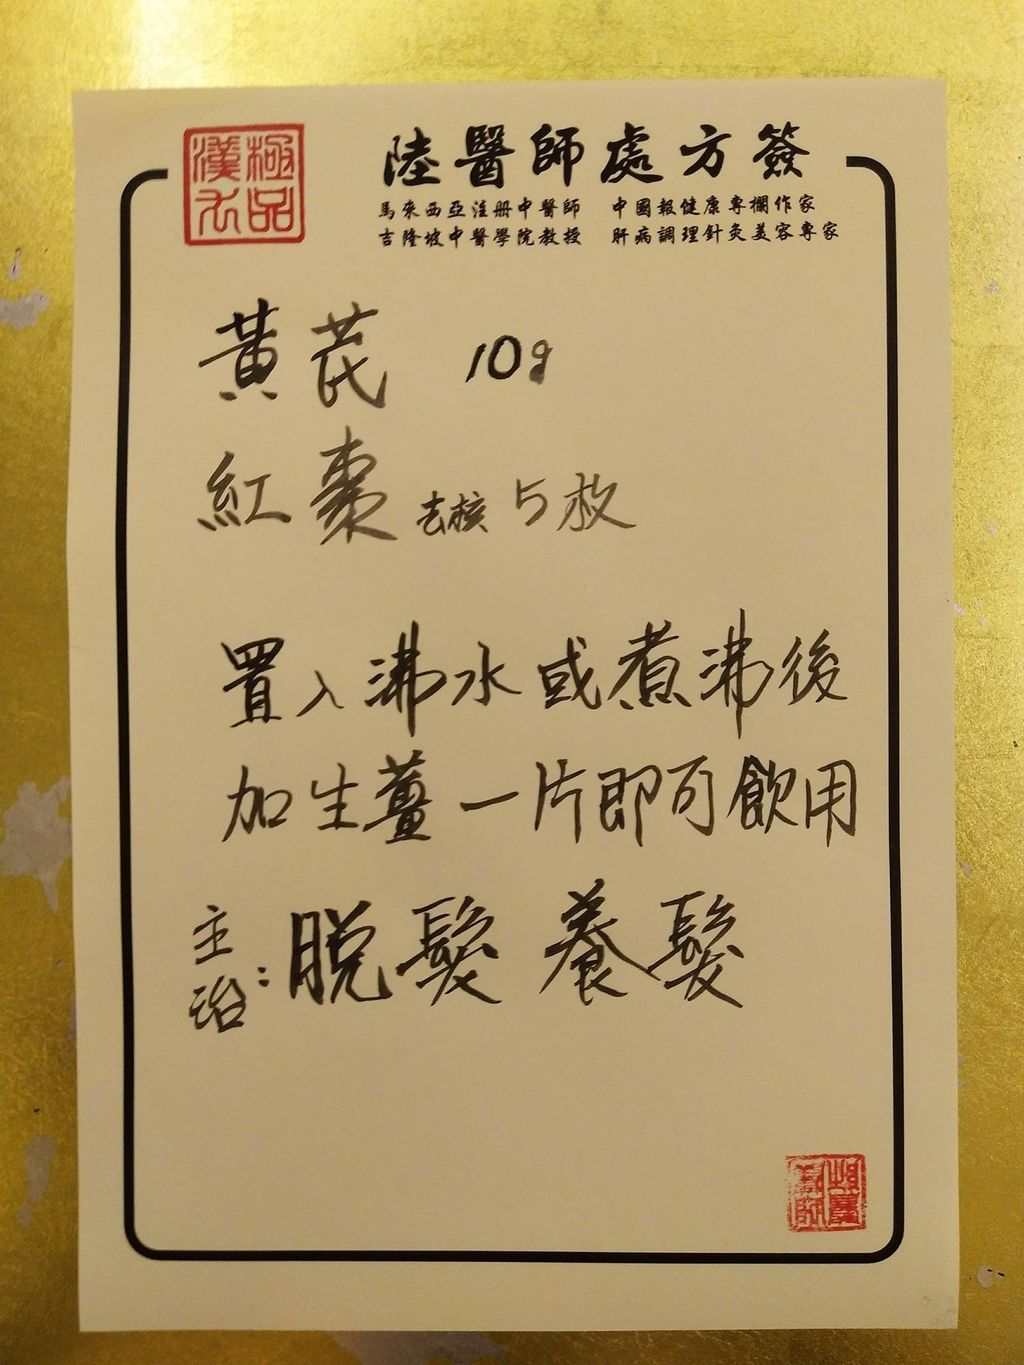 極品
漢方
陸醫師處方簽
馬來西亞注册中醫師 中國報健康專欄作家
吉隆坡中醫學院教授 肝病調理針灸美容專家
黃芪 10g
紅棗去核5枚
置入沸水或煮沸後
加生薑一片即可飲用
主治:脱髮養髮